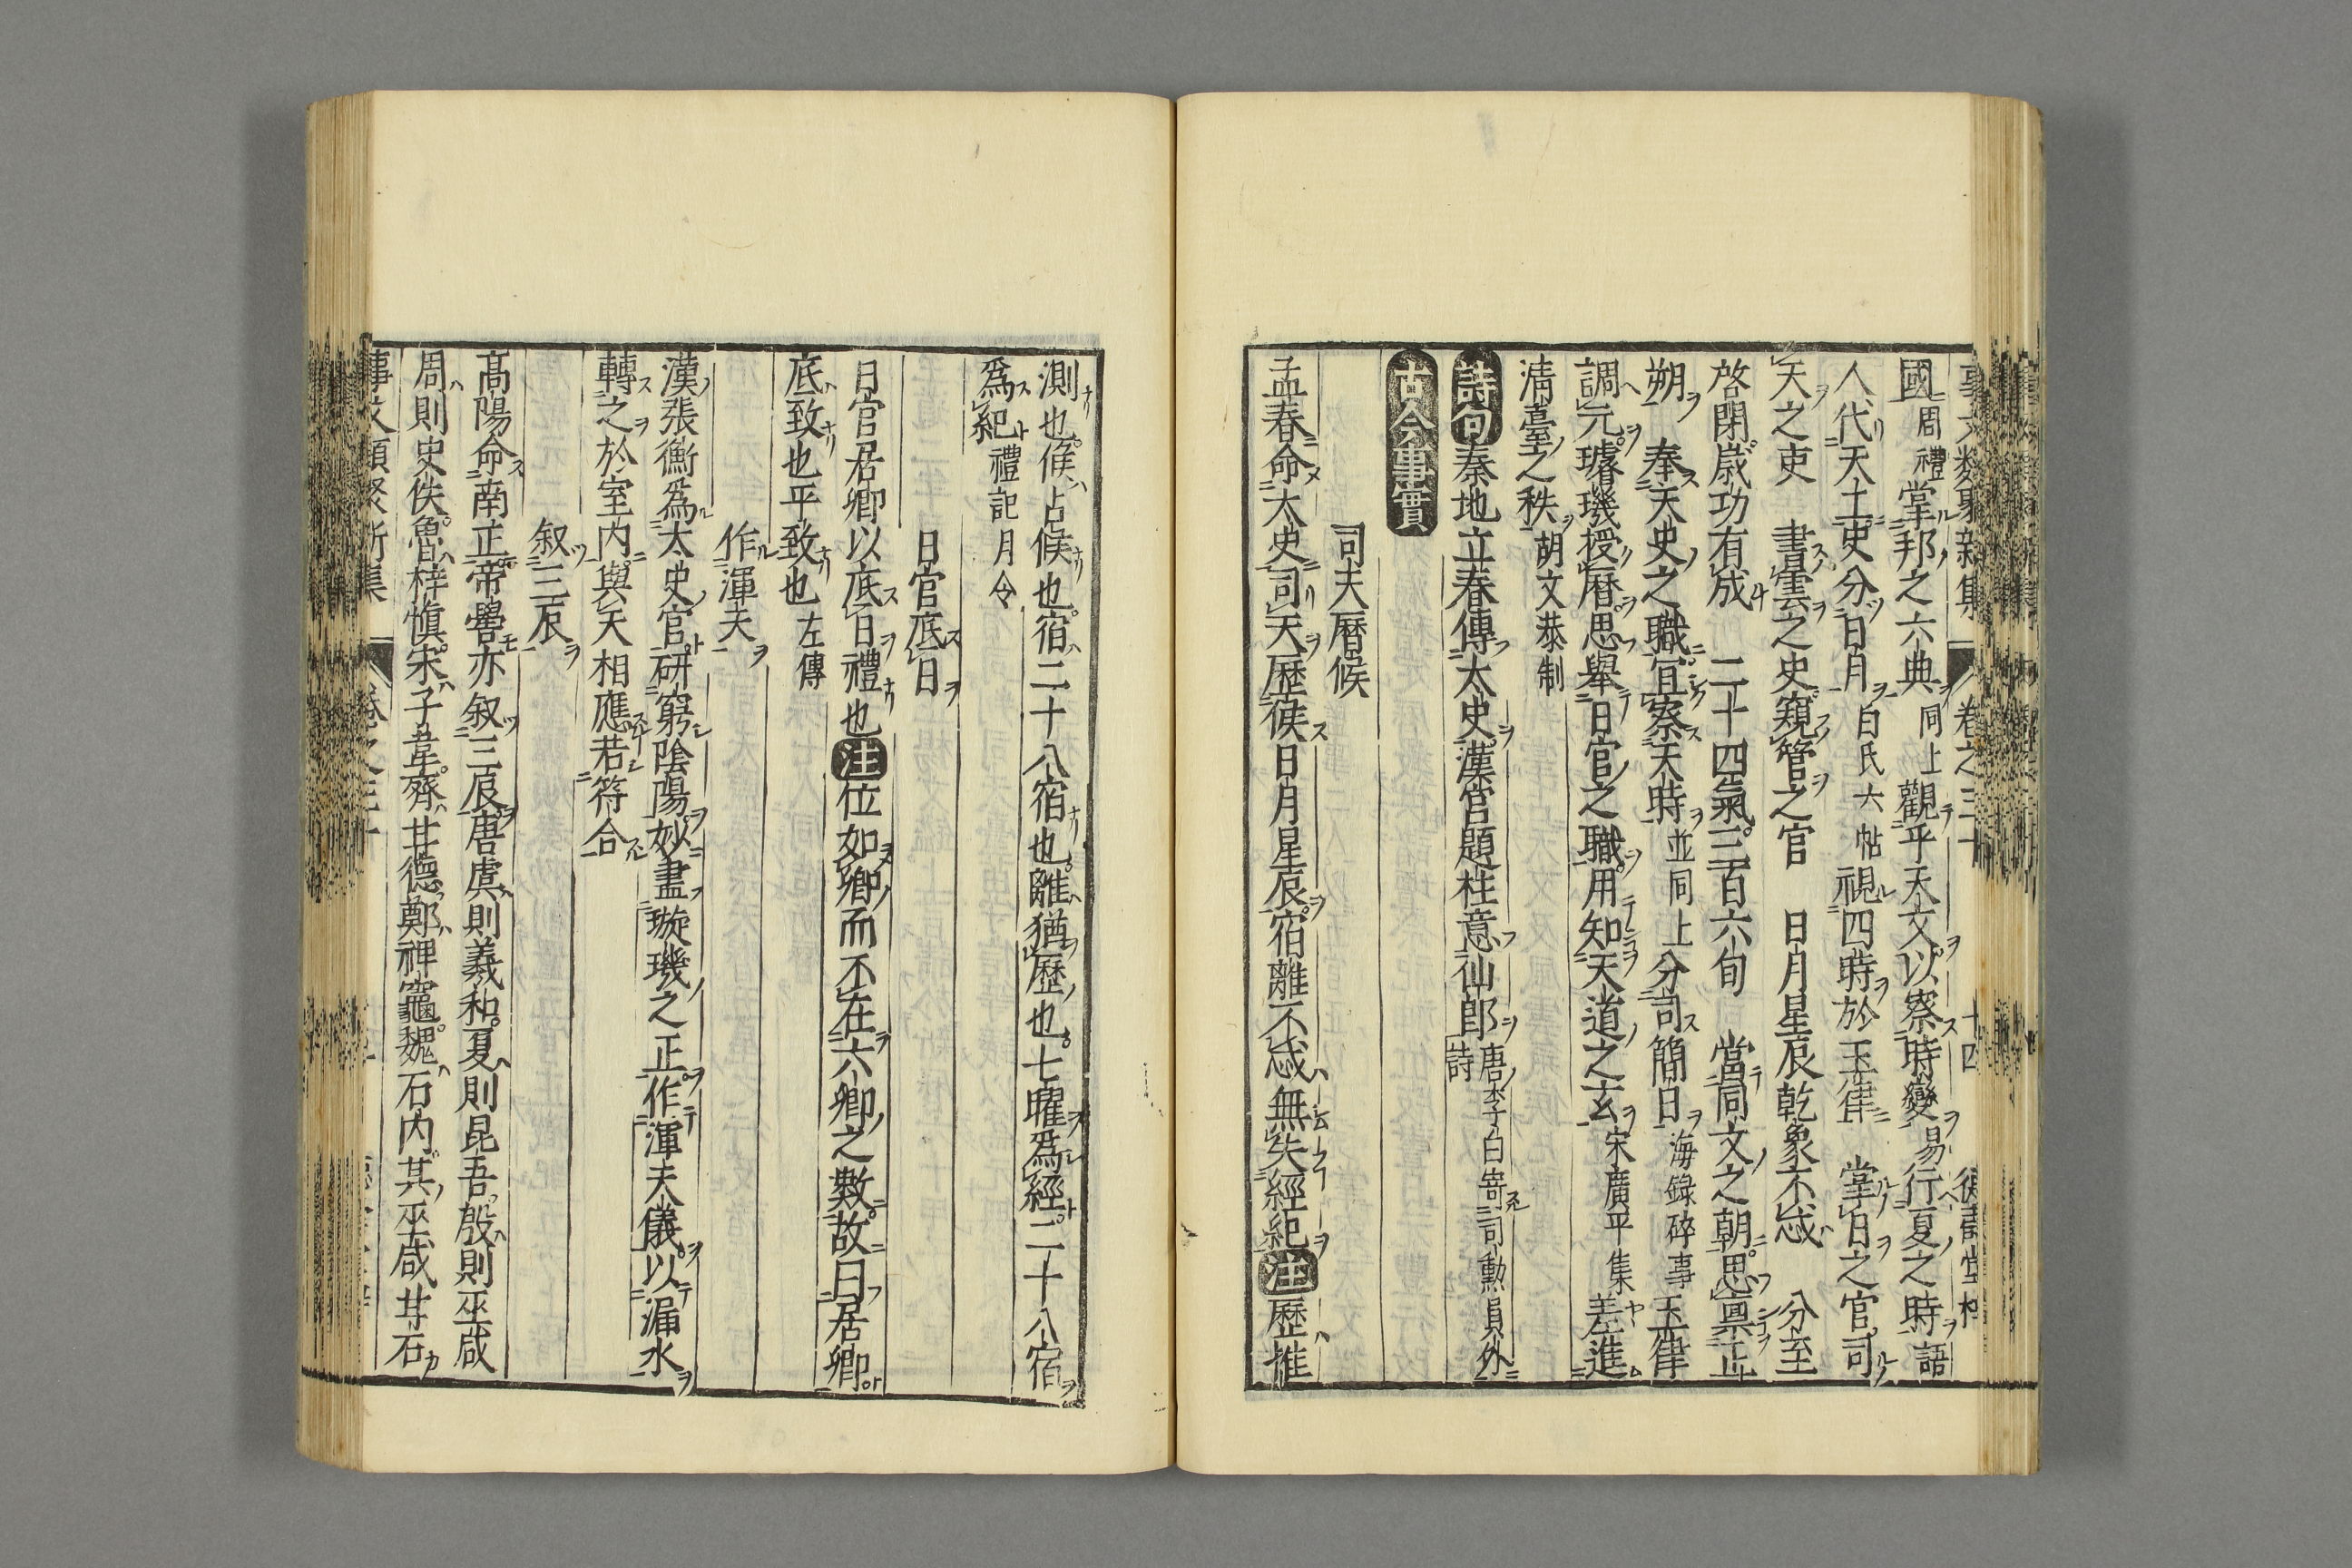 事文類聚新集 卷之三十 十四
國周禮掌邦之六典同上觀乎天文以察時變易行夏之時語
人代天工吏分日月白氏六帖視四時於玉律 掌日之官司
天之吏 書雲之史窺管之官 日月星辰乾象不忒 分至
啓閉歲功有成 二十四氣三百六旬 當同文之朝思稟正
朔 奉天史之職宜察天時並同上分司簡日海録碎事玉律
調元璿璣授曆思舉日官之職用知天道之玄宋廣平集差進
清臺之秩胡文恭制
詩句秦地立春傳太史漢宮題柱意仙郎唐李白寄司勲員外詩
古今事實
司天曆候
孟春命太史司天歷候日月星辰宿離不忒無失經紀注歷推
測也候占候也宿二十八宿也離猶歷也七曜爲經二十八宿
爲紀禮記月令
日官底日
日官居卿以底日禮也注位如卿而不在六卿之數故曰居卿
底致也平致也左傳
作渾天
漢張衡爲太史官研窮陰陽妙盡璇璣之正作渾天儀以漏水
轉之於室内與天相應若符合
叙三辰
髙陽命南正帝嚳亦叙三辰唐虞則羲和夏則昆吾殷則巫咸
周則史佚魯梓慎宋子韋齊甘德鄭裨竈魏石内其巫咸甘石
事文類聚新集 卷之三十